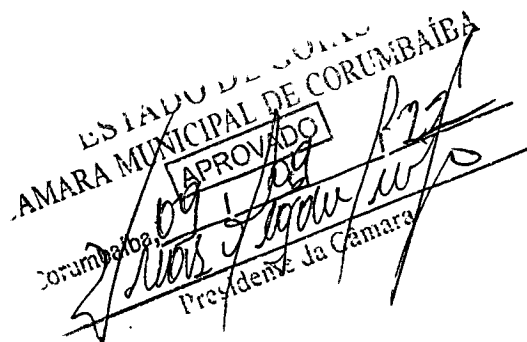 ESTADO DE GOIÁS
CAMARA MUNICIPAL DE CORUMBAÍBA
APROVADO
Corumbaíba, 09 / 09
Presidente da Câmara